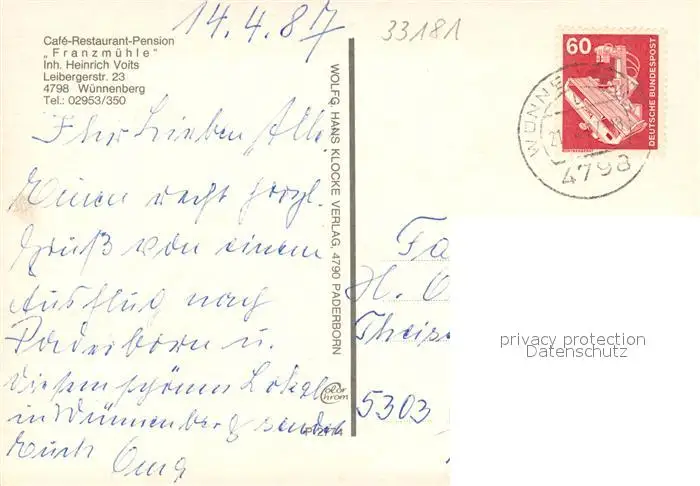 14.4.87
33181
Café-Restaurant-Pension
„Franzmühle"
Inh. Heinrich Voits
Leibergerstr. 23
4798 Wünnenberg
Tel.: 02953/350
Ihr Lieben Alle
Einen recht herzl.
Gruß von einem
Ausflug nach
Paderborn u.
diesem schönen Lokal
in Wünnenberg sendet
Euch Oma
WOLFG. HANS KLOCKE VERLAG, 4790 PADERBORN
Color
Chrom
60
DEUTSCHE BUNDESPOST
WÜNNE
4798
Fa
H.
5303
privacy protection
Datenschutz